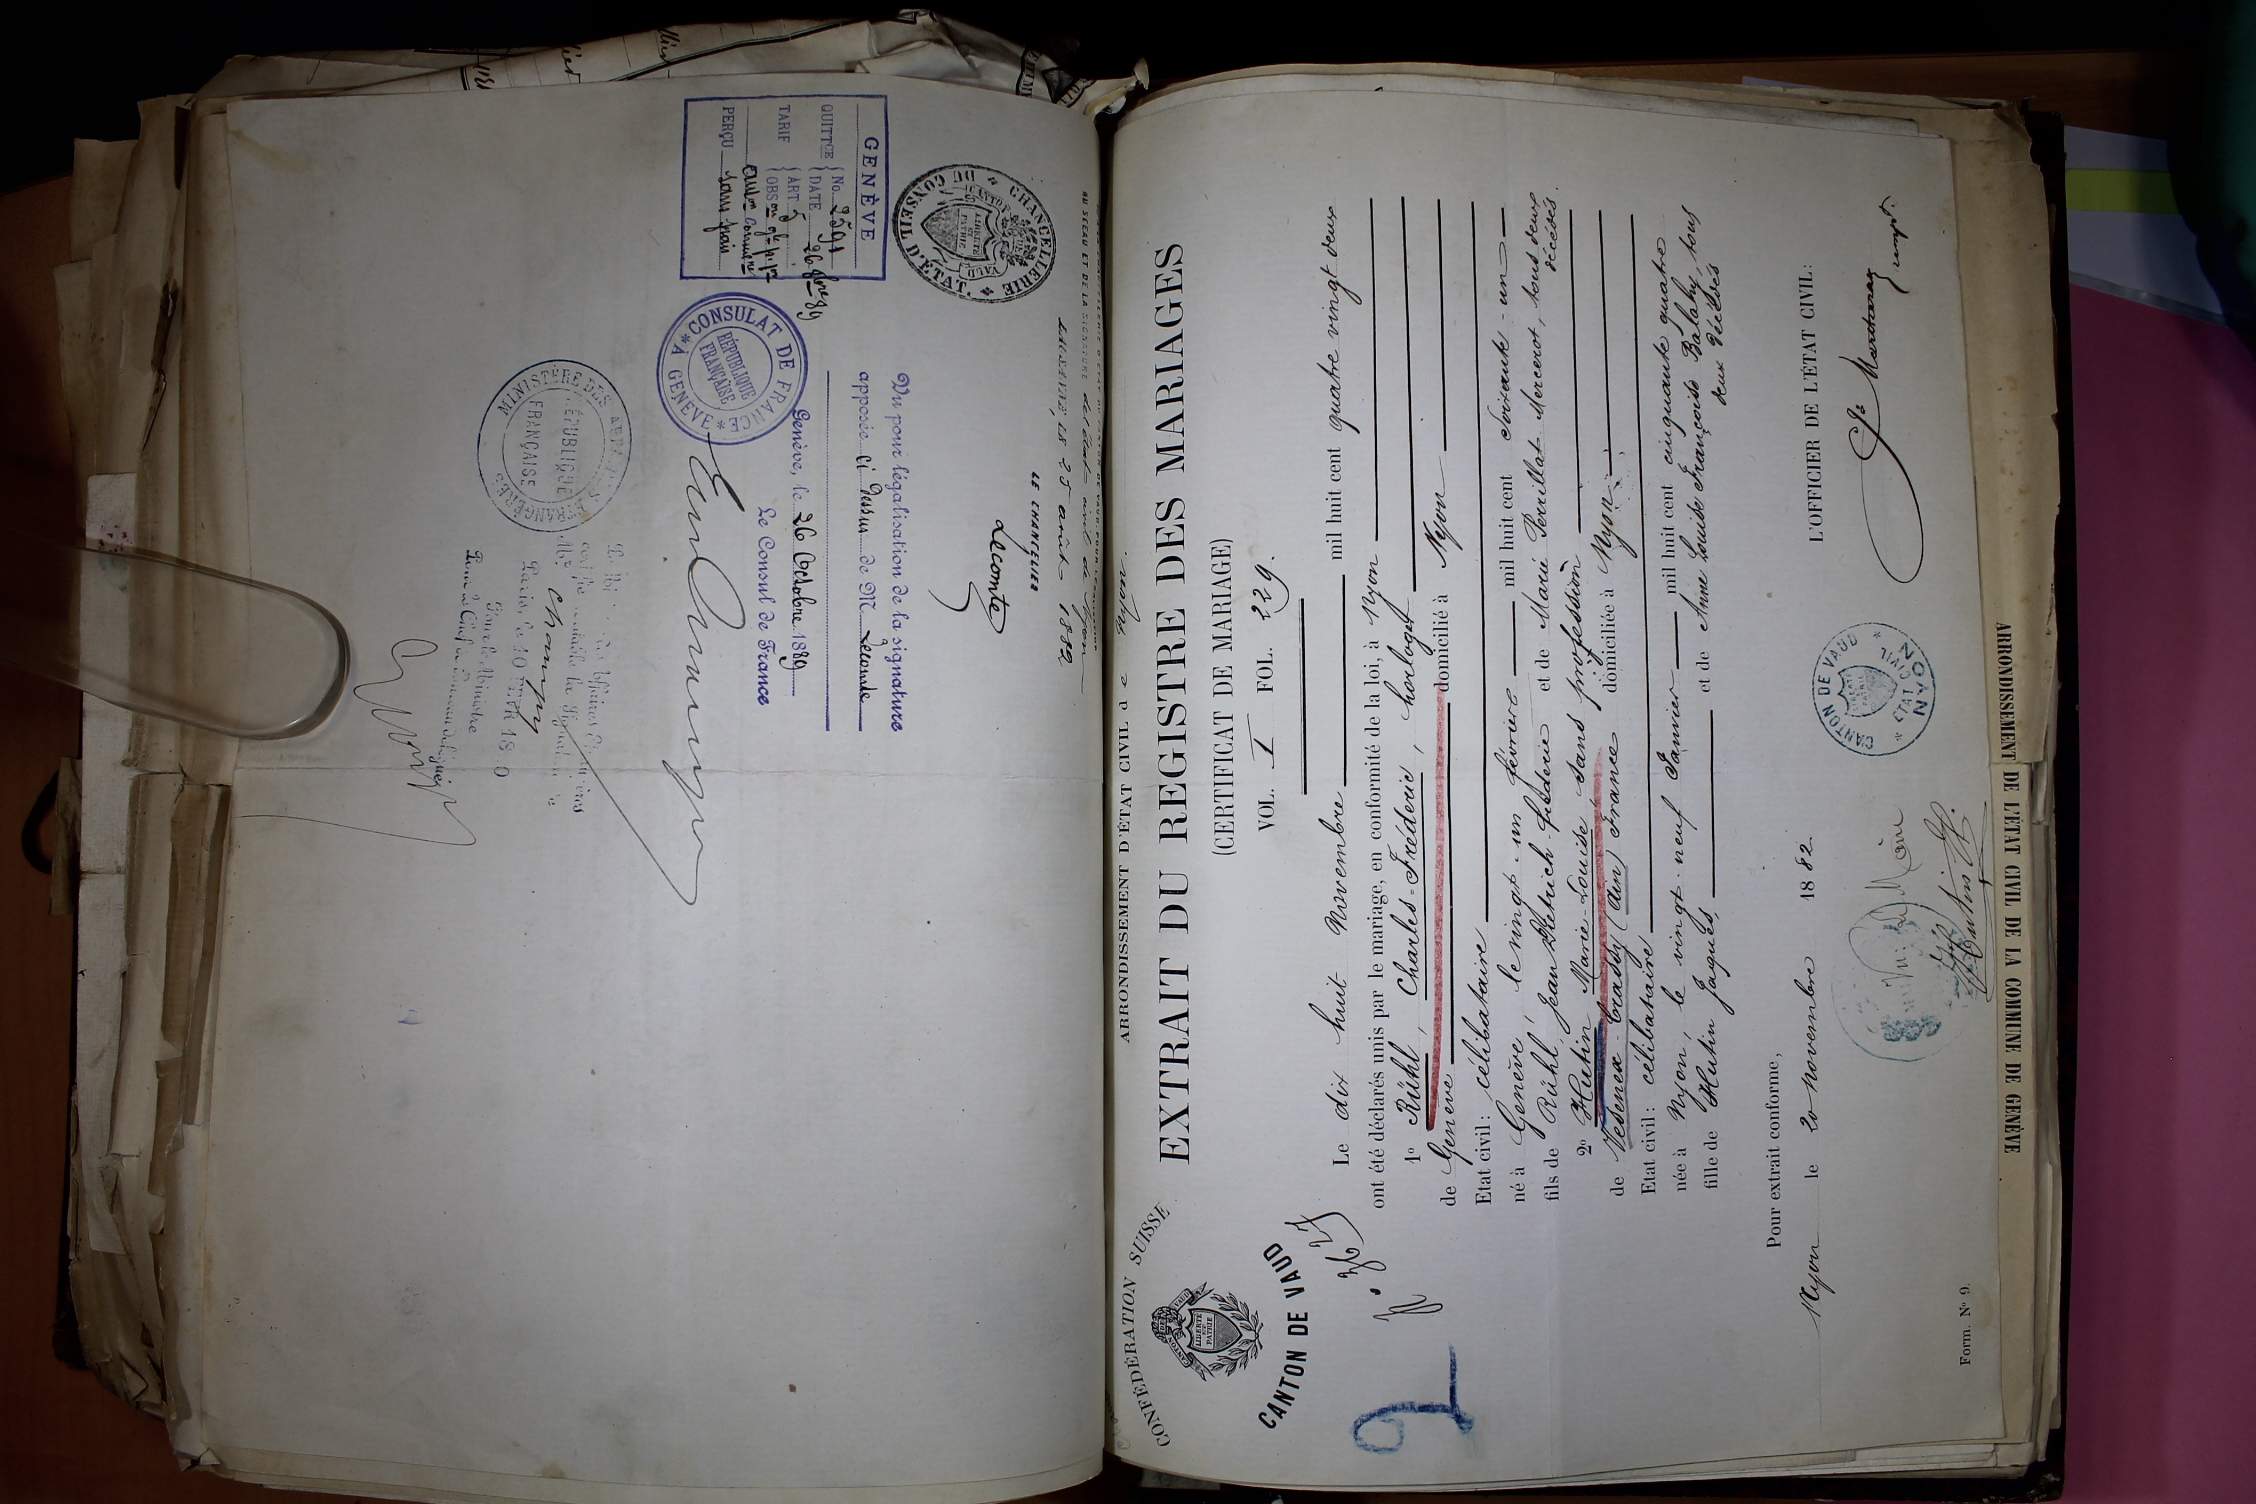 CONFÉDÉRATION SUISSE
CANTON DE VAUD
LIBERTÉ ET PATRIE
CANTON DE VAUD
2
N° 3627
ARRONDISSEMENT D'ÉTAT CIVIL de Nyon.
EXTRAIT DU REGISTRE DES MARIAGES
(CERTIFICAT DE MARIAGE)
VOL. I FOL. 229.
Le dix huit Novembre mil huit cent quatre vingt deux
ont été déclarés unis par le mariage, en conformité de la loi, à Nyon
1° Rühl, Charles-Frédéric, horloger
de Genève domicilié à Nyon
Etat civil: célibataire
né à Genève, le vingt-un février mil huit cent soixante-un
fils de Rühl, Jean Diétrich fréderic et de Marie Perrillat-Mercerot, tous deux
décédés.
2° Hutin Marie-Louise sans profession
de Vesenex-Crassy (Ain) France domiciliée à Nyon
Etat civil: célibataire
née à Nyon, le vingt-neuf Janvier mil huit cent cinquante quatre
fille de Hutin Jaques, et de Anne Louise Françoise Balahy, tous
deux décédés
Pour extrait conforme,
Nyon le 20 novembre 1882
L'OFFICIER DE L'ÉTAT CIVIL:
CANTON DE VAUD
ETAT CIVIL
NYON
Vu, le Maire
Form. N° 9.
ARRONDISSEMENT DE L'ETAT CIVIL DE LA COMMUNE DE GENÈVE
AU SCEAU ET DE LA SIGNATURE de l'état civil de Nyon
LAUSANNE, LE 25 août 1882
LE CHANCELIER
Lecomte
CHANCELLERIE DU CONSEIL D'ÉTAT.
CANTON DE VAUD
LIBERTÉ ET PATRIE
GENÈVE
QUITTCE No. 2591
DATE 26 8bre 89
TARIF ART
OBSon
PERÇU sans frais
Vu pour légalisation de la signature
apposée ci dessus de M. Lecomte
Genève, le 26 Octobre 1889
Le Consul de France
CONSULAT DE FRANCE A GENÈVE
RÉPUBLIQUE FRANÇAISE
MINISTÈRE DES AFFAIRES ÉTRANGÈRES
RÉPUBLIQUE FRANÇAISE
Champy
Pour le Ministre